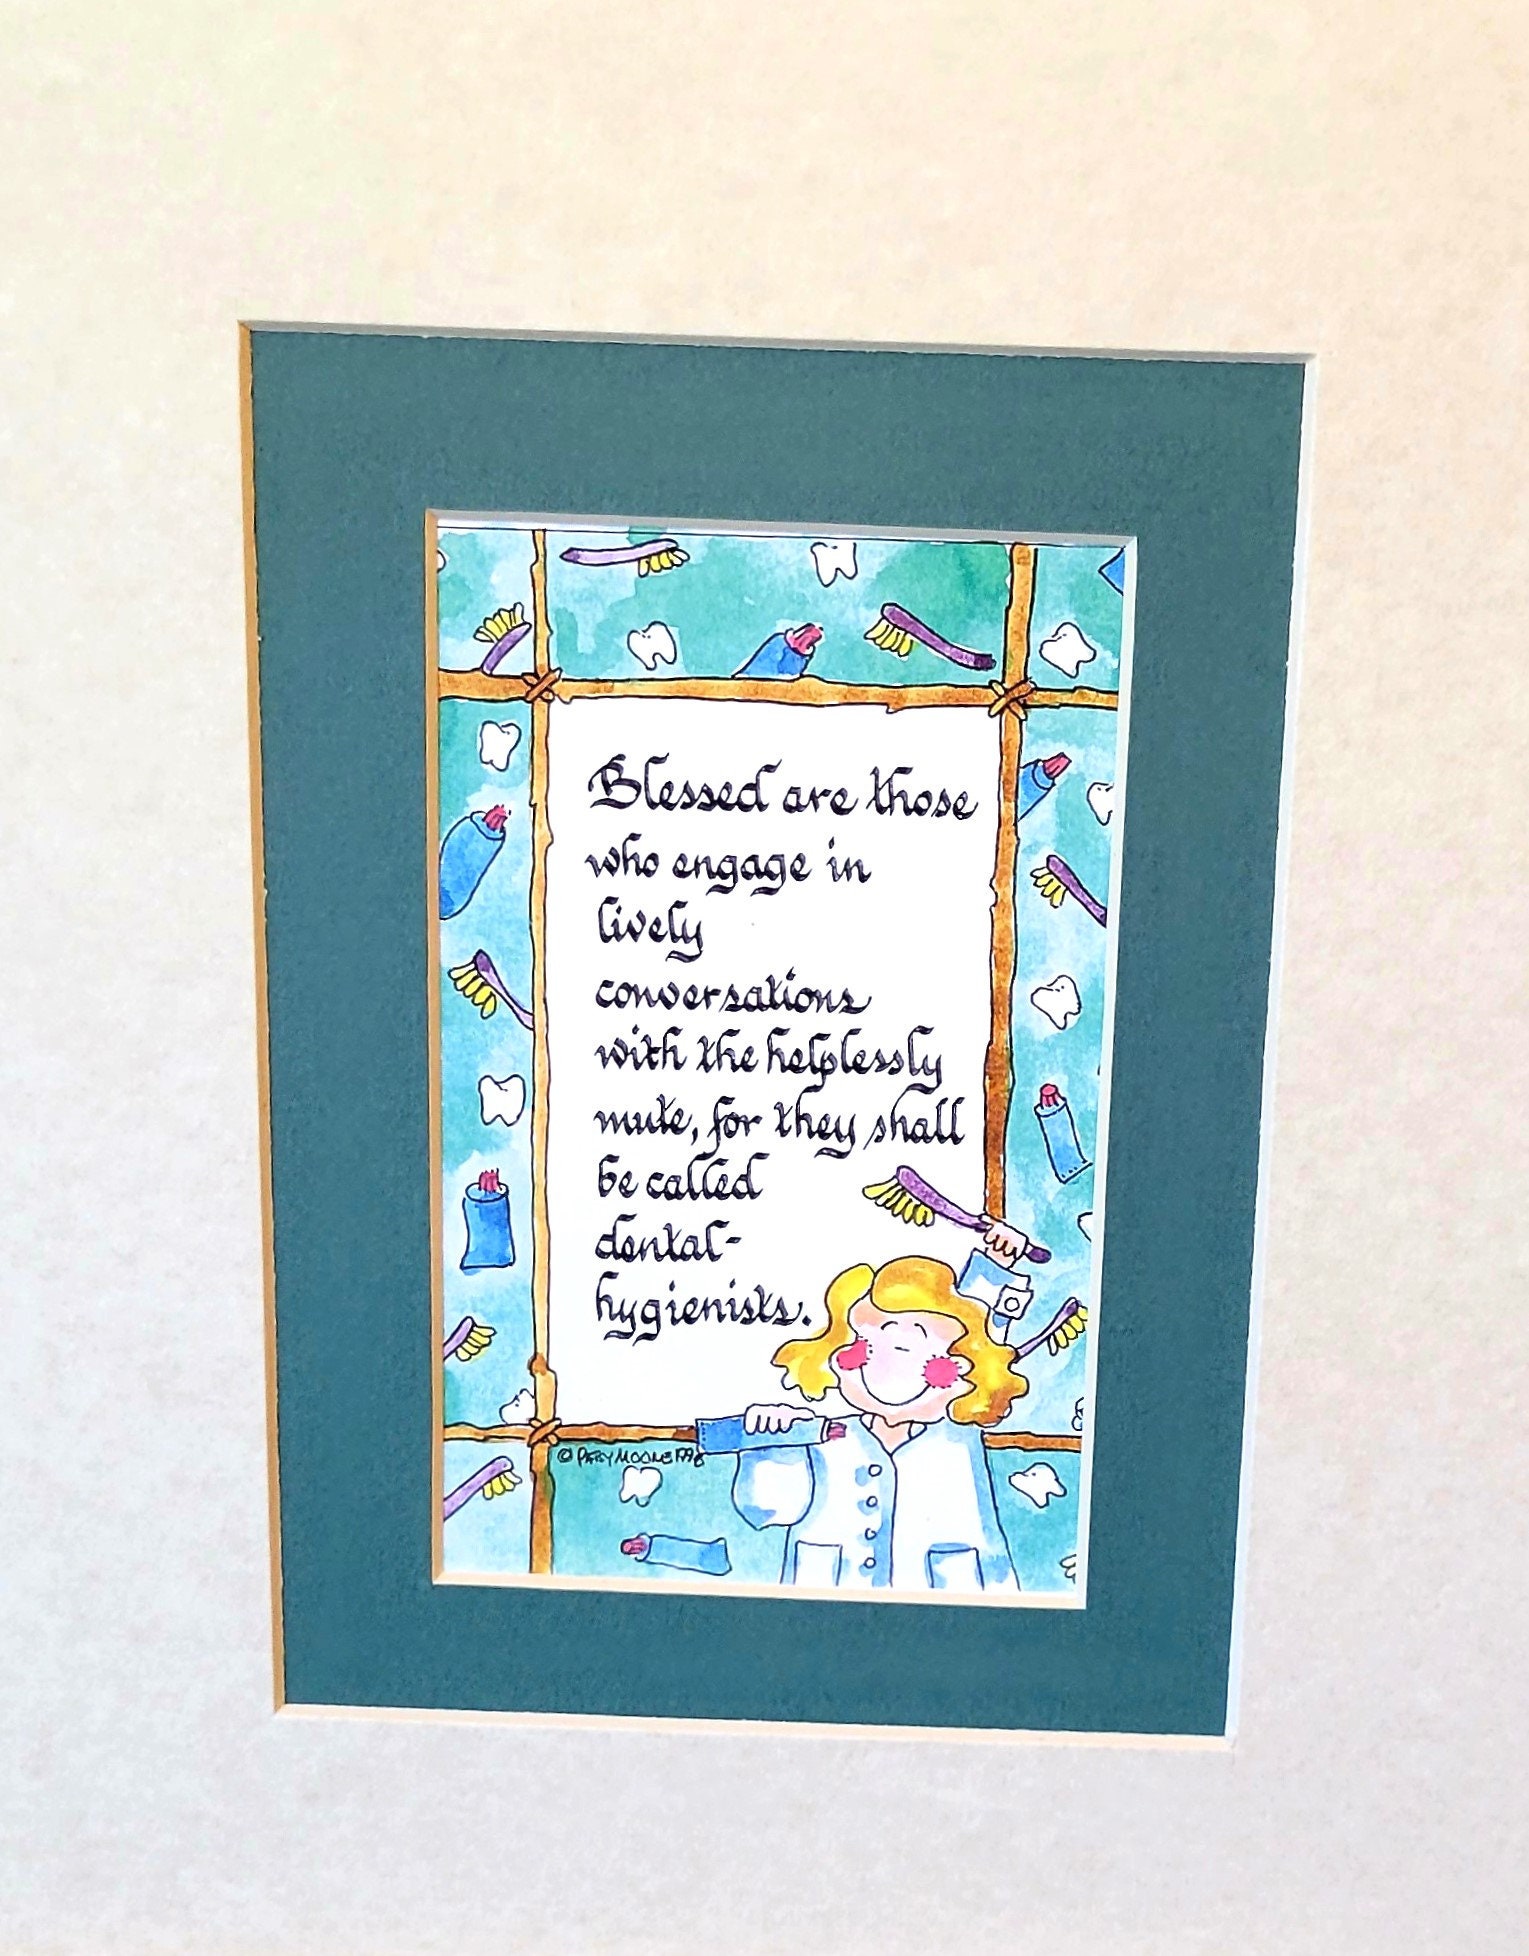 Blessed are those
who engage in
lively
conversations
with the helplessly
mute, for they shall
be called
dental-
hygienists.
©